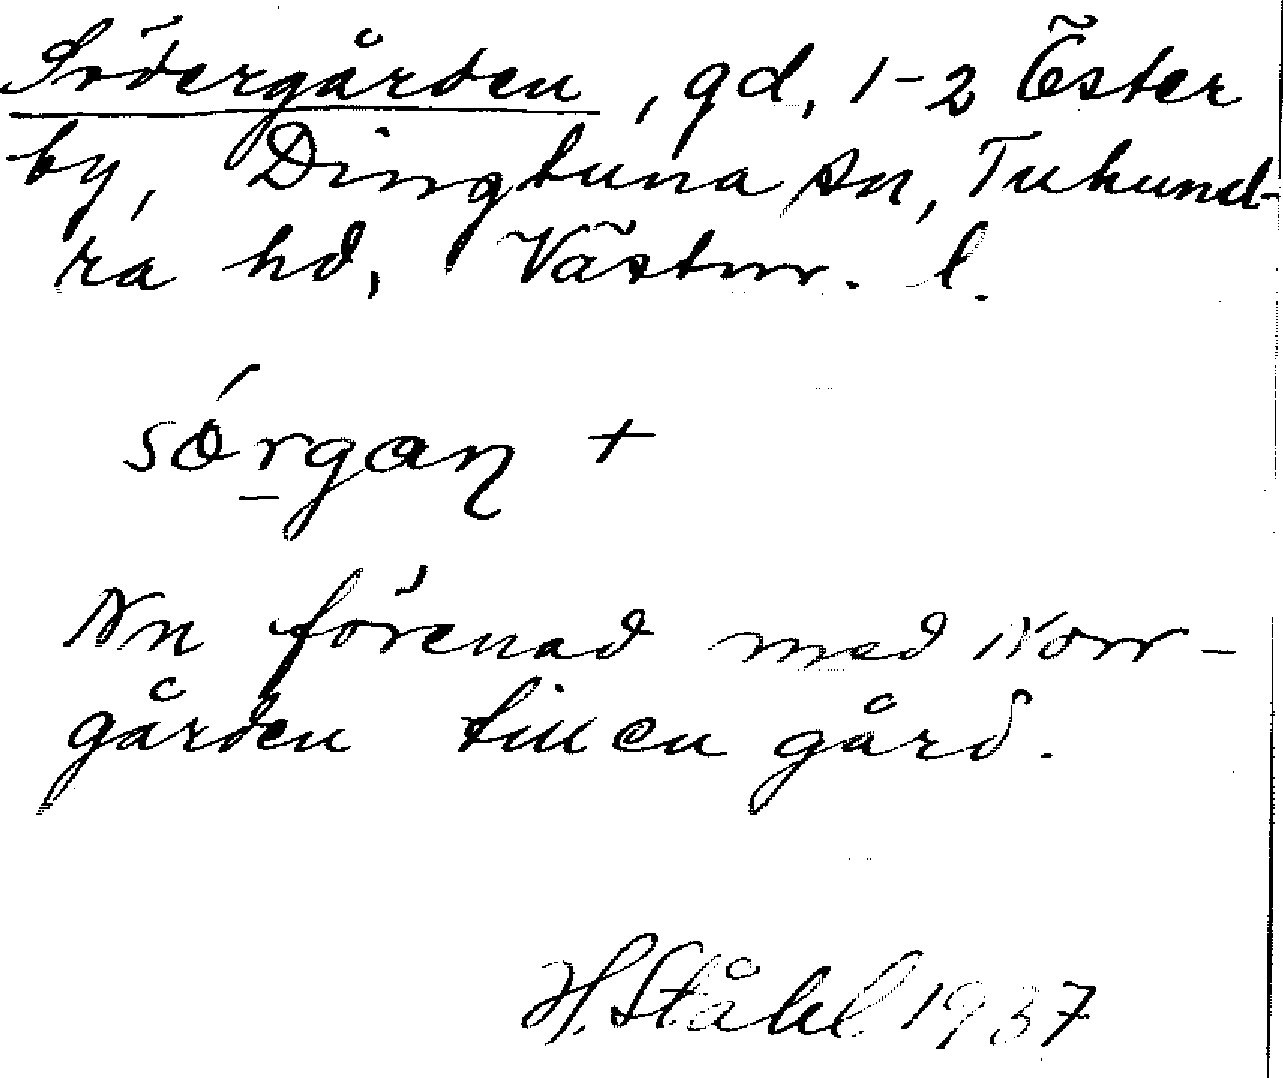 Södergården, gd, 1-2 Öster
by, Dingtuna sn, Tuhund-
ra hd, Västm. l.
sǿrgaɳ +
Nu förenad med Norr-
gården till en gård.
H. Ståhl 1937